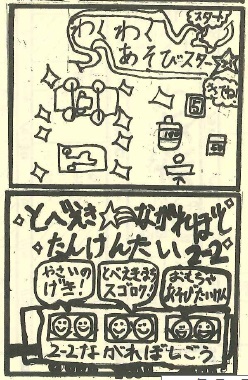 スタート
わくわく
あそびスター
きてね
5
100
とべ えき☆ながれぼし
たんけんたい 2-2
やさいの
げき!
とべえきまち
スゴロク!
おもちゃ
あそびたいけん
2-2ながれぼしごう